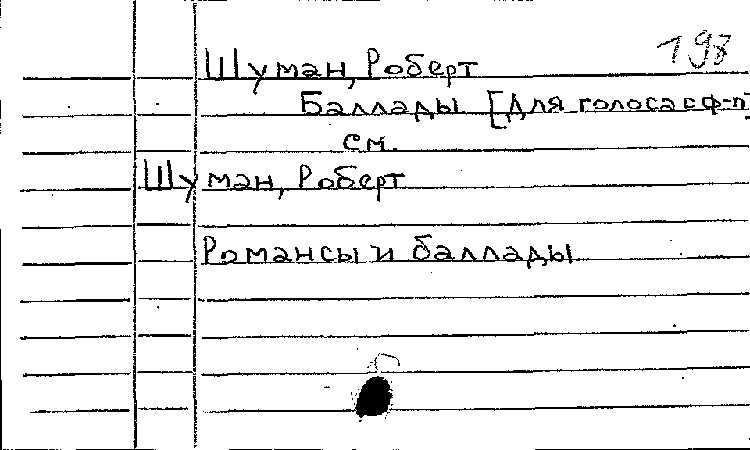 198
Шуман, Роберт
Баллады [Для голоса с ф-п]
см.
Шуман, Роберт
Романсы и баллады